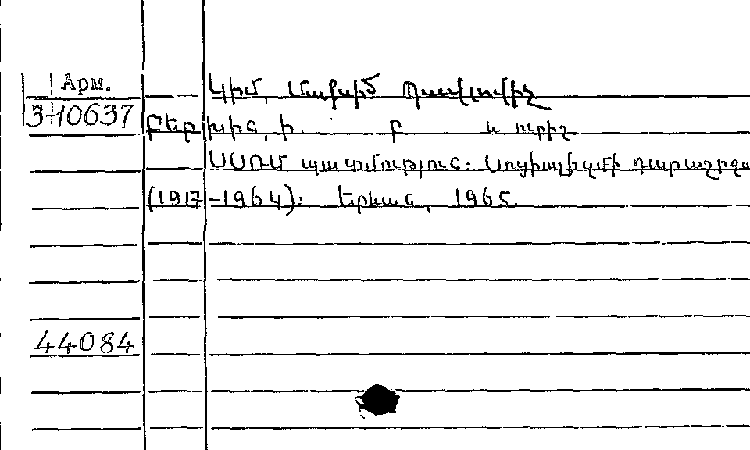 Арм.
3-10637
Կիմ, Մաքսիմ Պավլովիչ
Բերխին, Ի. Բ և ուրիշ
ՍՍՌՄ պատմություն: Սոցիալիզմի դարաշրջա
(1917-1964): Երևան, 1965
44084